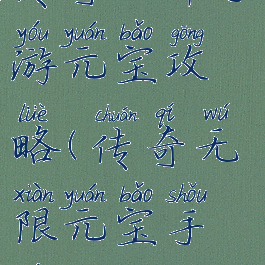 yóu yuán bǎo gōng
游元宝攻
lüè chuán qí wú
略(传奇无
xiàn yuán bǎo shǒu
限元宝手